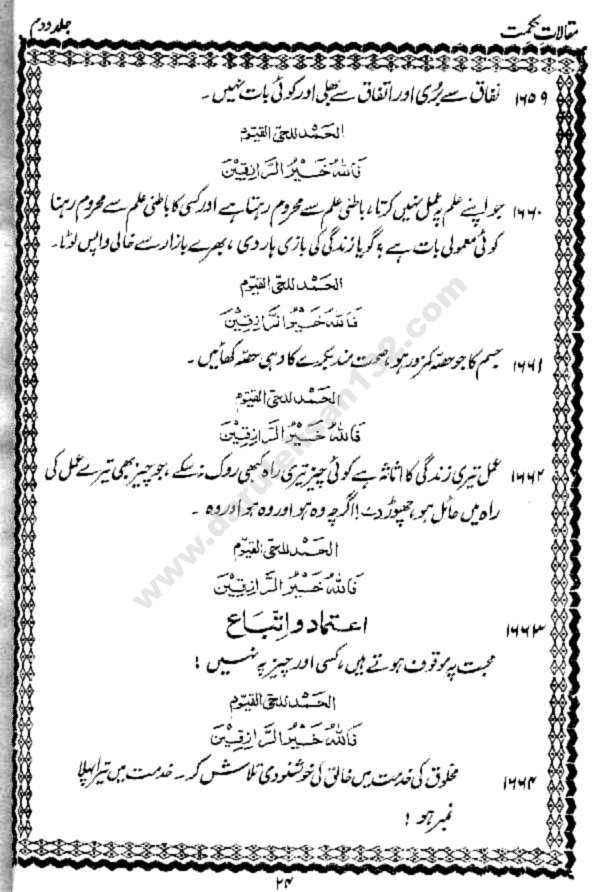 مقالاتِ حکمت
جلد دوم
۱۶۵۹ نفاق سے بُری اور اتفاق سے بھلی اور کوئی بات نہیں ۔
الحمد للحی القیّوم
فَاللہُ خَیْرُ الرَّازِقِیْنَ
۱۶۶۰ جو اپنے علم پہ عمل نہیں کرتا ، باطنی علم سے محروم رہتا ہے اور کسی کا باطنی علم سے محروم رہنا
کوئی معمولی بات ہے ؟ گویا زندگی کی بازی ہار دی ، بھرے بازار سے خالی واپس لوٹا۔
الحمد للحی القیّوم
فَاللہُ خَیْرُ الرَّازِقِیْنَ
۱۶۶۱ جسم کا جو حصّہ کمزور ہو ، صحت مند بکرے کا وہی حصّہ کھائیں ۔
الحمد للحی القیّوم
فَاللہُ خَیْرُ الرَّازِقِیْنَ
۱۶۶۲ عمل تیری زندگی کا اثاثہ ہے کوئی چیز تیری راہ کبھی روک نہ سکے ، جو چیز بھی تیرے عمل کی
راہ میں حائل ہو ، چھوڑ دے ! اگرچہ وہ ہو اور وہ ہو اور وہ ۔
الحمد للحی القیّوم
فَاللہُ خَیْرُ الرَّازِقِیْنَ
۱۶۶۳ اعتماد و اِتّباع
محبت پہ موقوف ہوتے ہیں ، کسی اور چیز پہ نہیں !
الحمد للحی القیّوم
فَاللہُ خَیْرُ الرَّازِقِیْنَ
۱۶۶۴ مخلوق کی خدمت میں خالق کی خوشنودی تلاش کر ۔ خدمت میں تیرا پہلا
نمبر ہو !
۲۴